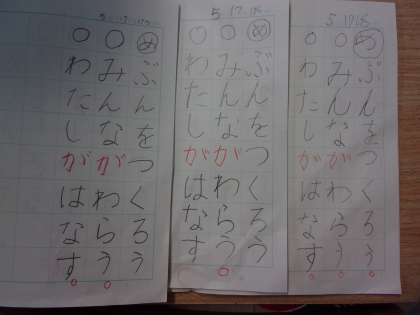 5 17 18
めぶんをつくろう
○みんながわらう。
○わたしがはなす。
5 17.18
めぶんをつくろう
○みんながわらう。
○わたしがはなす
めぶんをつくろう
○みんながわらう。
○わたしがはなす。